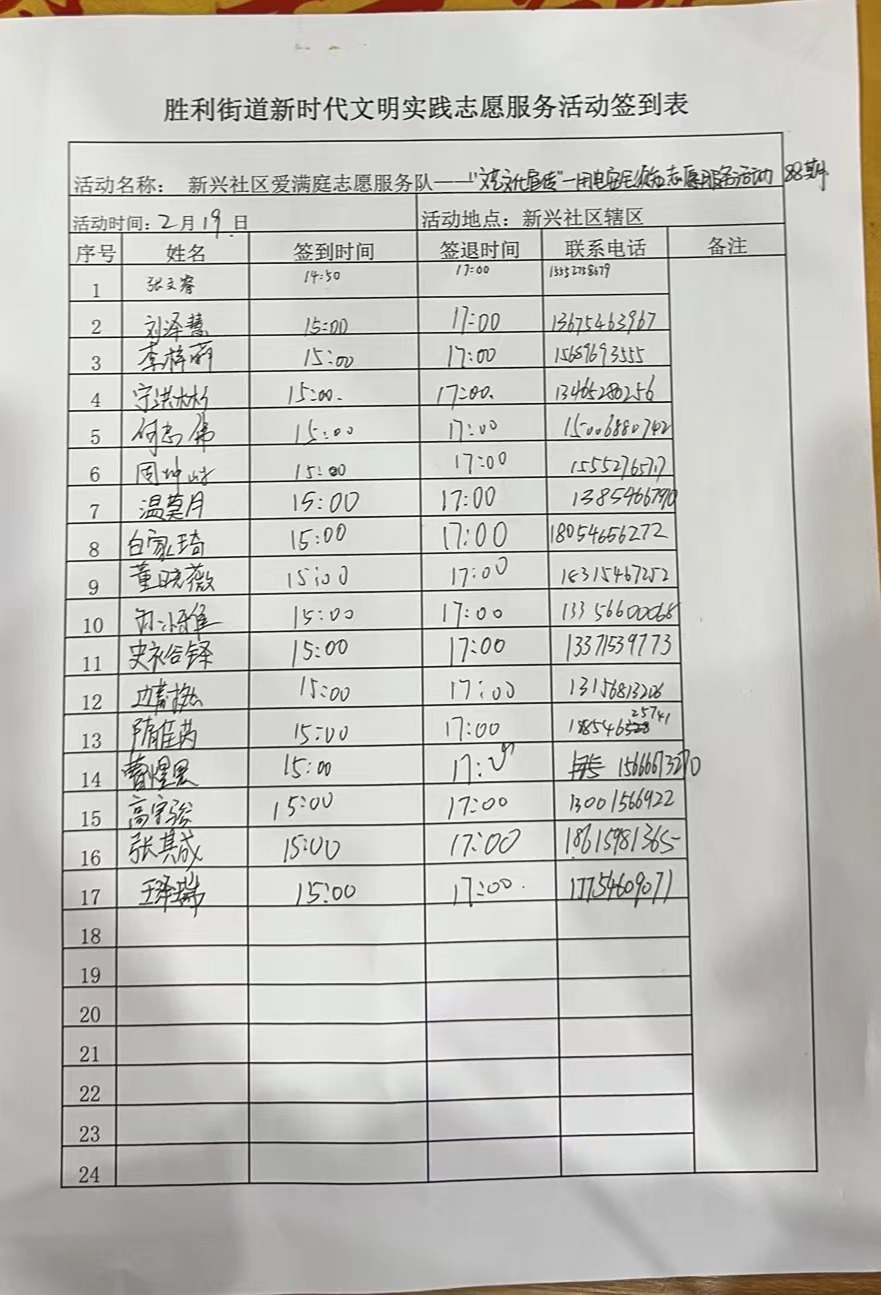 胜利街道新时代文明实践志愿服务活动签到表
活动名称： 新兴社区爱满庭志愿服务队——"文艺文化宣传"—用电安全须知志愿服务活动 88期
活动时间：2月19日 活动地点：新兴社区辖区
序号 姓名 签到时间 签退时间 联系电话 备注
1 张文睿 14:50 17:00
2 刘泽慧 15:00 17:00 13675463967
3 李梓萌 15:00 17:00 15689693555
4 宁洪彬 15:00. 17:00. 13465280256
5 何志伟 15:00 17:00 15006880742
6 周坤 15:00 17:00
7 温莫月 15:00 17:00
8 白家琦 15:00 17:00 18054656272
9 董晓薇 15:00 17:00 18315467252
10 15:00 17:00 13356600068
11 15:00 17:00 13371539773
12 15:00 17:00 13156813206
13 隋佳芮 15:00 17:00
14 15:00 17:00 15666673270
15 高宇骏 15:00 17:00 13001566922
16 张其成 15:00 17:00 18615981365
17 王泽瑞 15:00 17:00. 17754609071
18
19
20
21
22
23
24